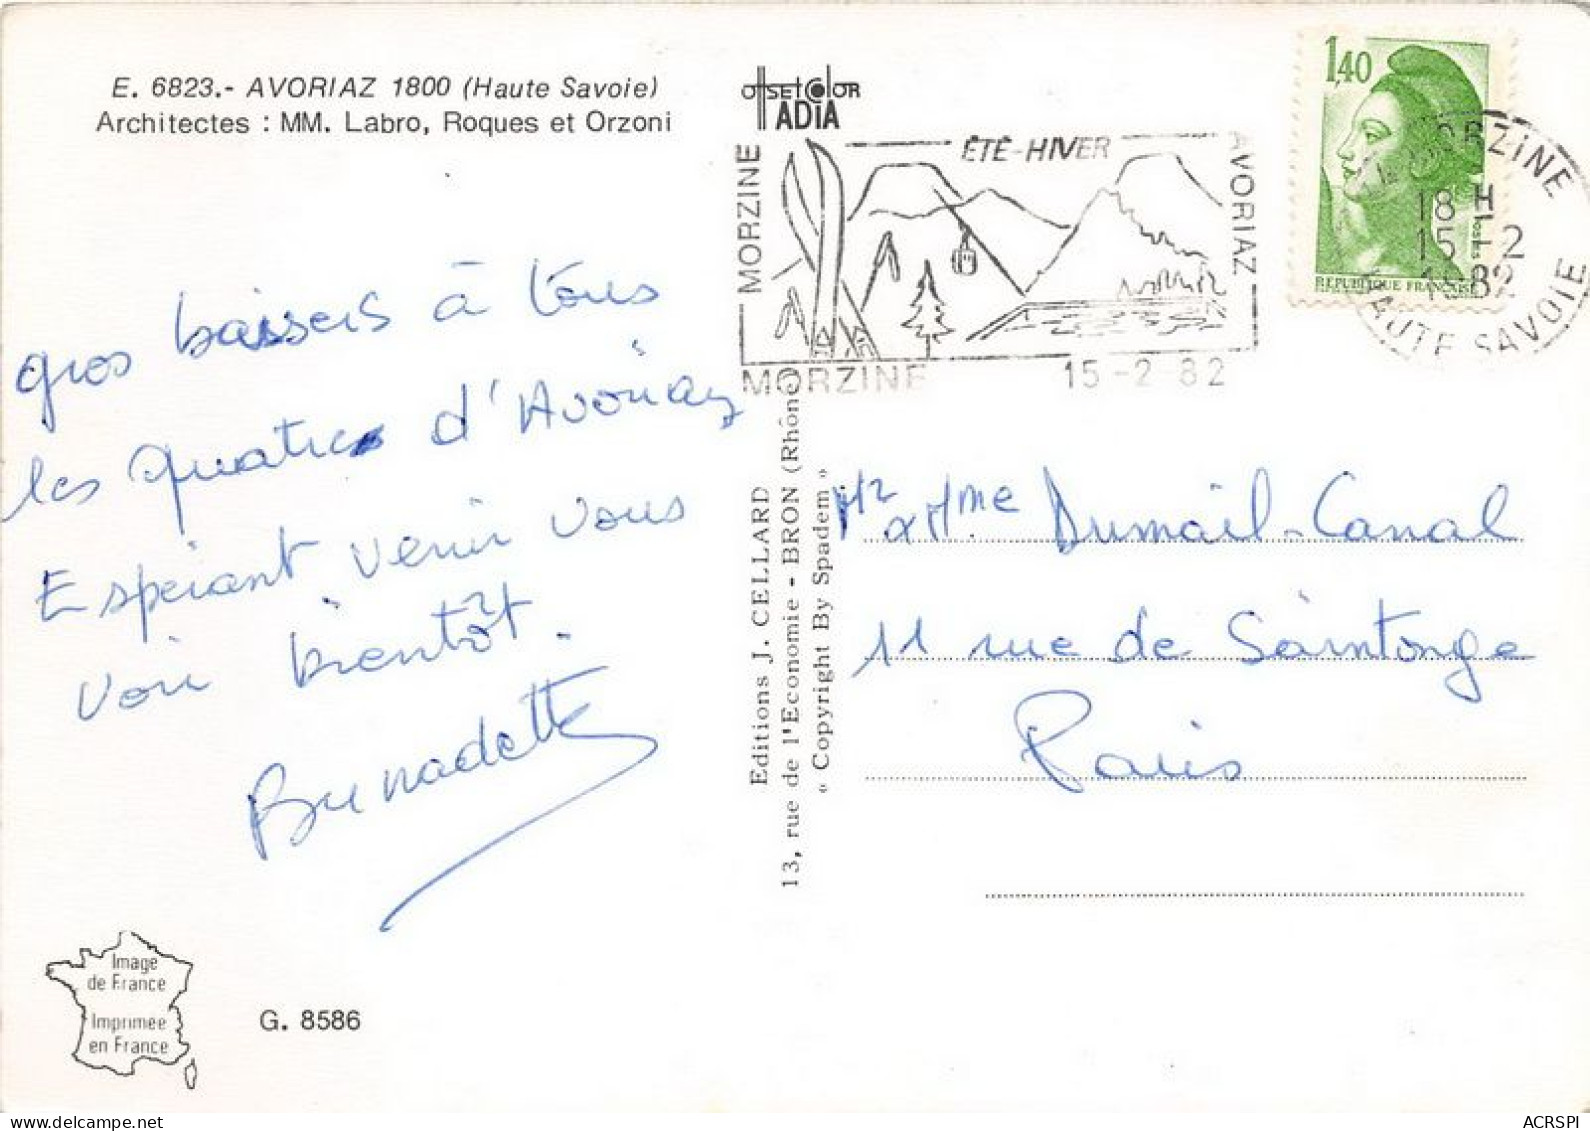 E. 6823.- AVORIAZ 1800 (Haute Savoie)
Architectes : MM. Labro, Roques et Orzoni
offsetcolor
ADIA
MORZINE
ÉTÉ-HIVER
AVORIAZ
MORZINE 15-2 82
1,40
REPUBLIQUE FRANÇAISE
MORZINE
18 H
15-2
1982
HAUTE SAVOIE
gros baisers à tous
les quatres d'Avoriaz
Espérant venir vous
voir bientôt.
Bernadette
Editions J. CELLARD
13, rue de l'Economie - BRON (Rhône)
« Copyright By Spadem »
Mr & Mme Dumail-Canal
11 rue de Saintonge
Paris
Image
de France
Imprimée
en France
G. 8586
ACRSPI